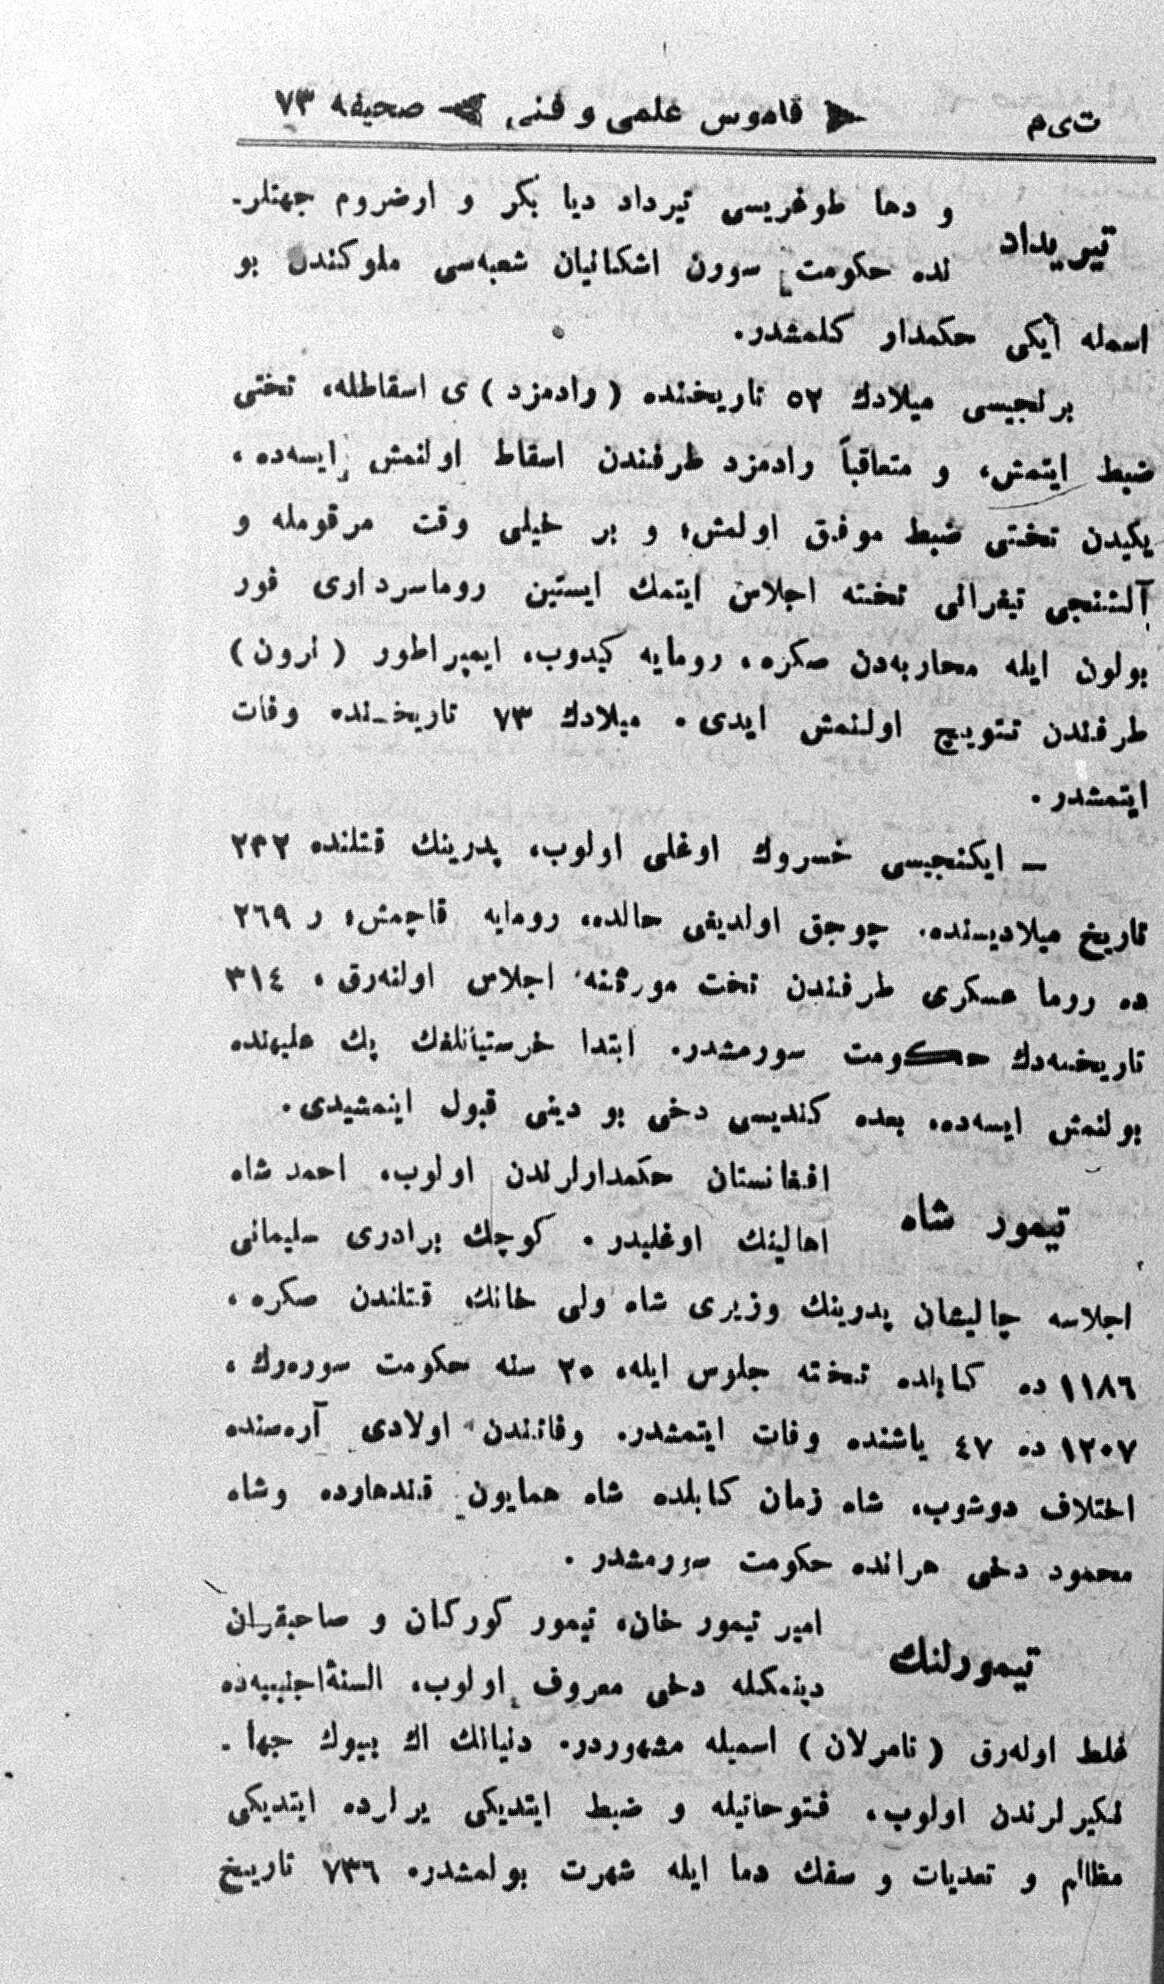 ت‌ی‌م قاموس علمی و فنی صحیفه ٧٣
و دها طوغریسی تیرداد دیا بکر و ارضروم جهتلر-
تیریداد
نده حکومت سورن اشکانیان شعبه‌سی ملوکندن بو
اسمله ایکی حکمدار کلمشدر.
برنجیسی میلادك ٥٢ تاریخنده (رادمزد) ی اسقاطله، تختی
ضبط ایتمش، و متعاقباً رادمزد طرفندن اسقاط اولنمش ایسه‌ده،
یکیدن تختی ضبط موفق اولمش؛ و بر خیلی وقت مرقومله و
آلتنجی تیغرانی تخته اجلاس ایتمك ایستین روماسرداری قور
بولون ایله محاربه‌دن صکره، رومایه کیدوب، ایمپراطور (نرون)
طرفندن تتویج اولنمش ایدی. میلادك ٧٣ تاریخـنده وفات
ایتمشدر.
— ایکنجیسی خسروك اوغلی اولوب، پدرینك قتلنده ٢٣٢
تاریخ میلادیسنده. چوجق اولدیغی حالده، رومایه قاچمش؛ ر ٢٦٩
ده روما عسکری طرفندن تخت مورثنه اجلاس اولنه‌رق، ٣١٤
تاریخنه‌دك حکومت سورمشدر. ابتدا خرستیانلغك پك علیهنده
بولنمش ایسه‌ده، بعده کندیسی دخی بو دینی قبول ایتمشیدی.
افغانستان حکمدارلرندن اولوب، احمد شاه
تیمور شاه
اهالینك اوغلیدر. کوچك برادری سلیمانی
اجلاسه چالیشان پدرینك وزیری شاه ولی خانك قتلندن صکره،
١١٨٦ ده کابلده تخته جلوس ایله، ٢٠ سنه حکومت سوره‌رك،
١٢٠٧ ده ٤٧ یاشنده وفات ایتمشدر. وفاتندن اولادی آره‌سنده
اختلاف دوشوب، شاه زمان کابلده شاه همایون قندهارده وشاه
محمود دخی هراتده حکومت سورمشدر.
امیر تیمور خان، تیمور کورکان و صاحبقران
تیمورلنك
دینمکله دخی معروف اولوب، السنهٔ اجنبیه‌ده
غلط اوله‌رق (تامرلان) اسمیله مشهوردر. دنیانك اك بیوك جها-
نکیرلرندن اولوب، فتوحاتیله و ضبط ایتدیکی یرلرده ایتدیکی
مظالم و تعدیات و سفك دما ایله شهرت بولمشدر. ٧٣٦ تاریخ